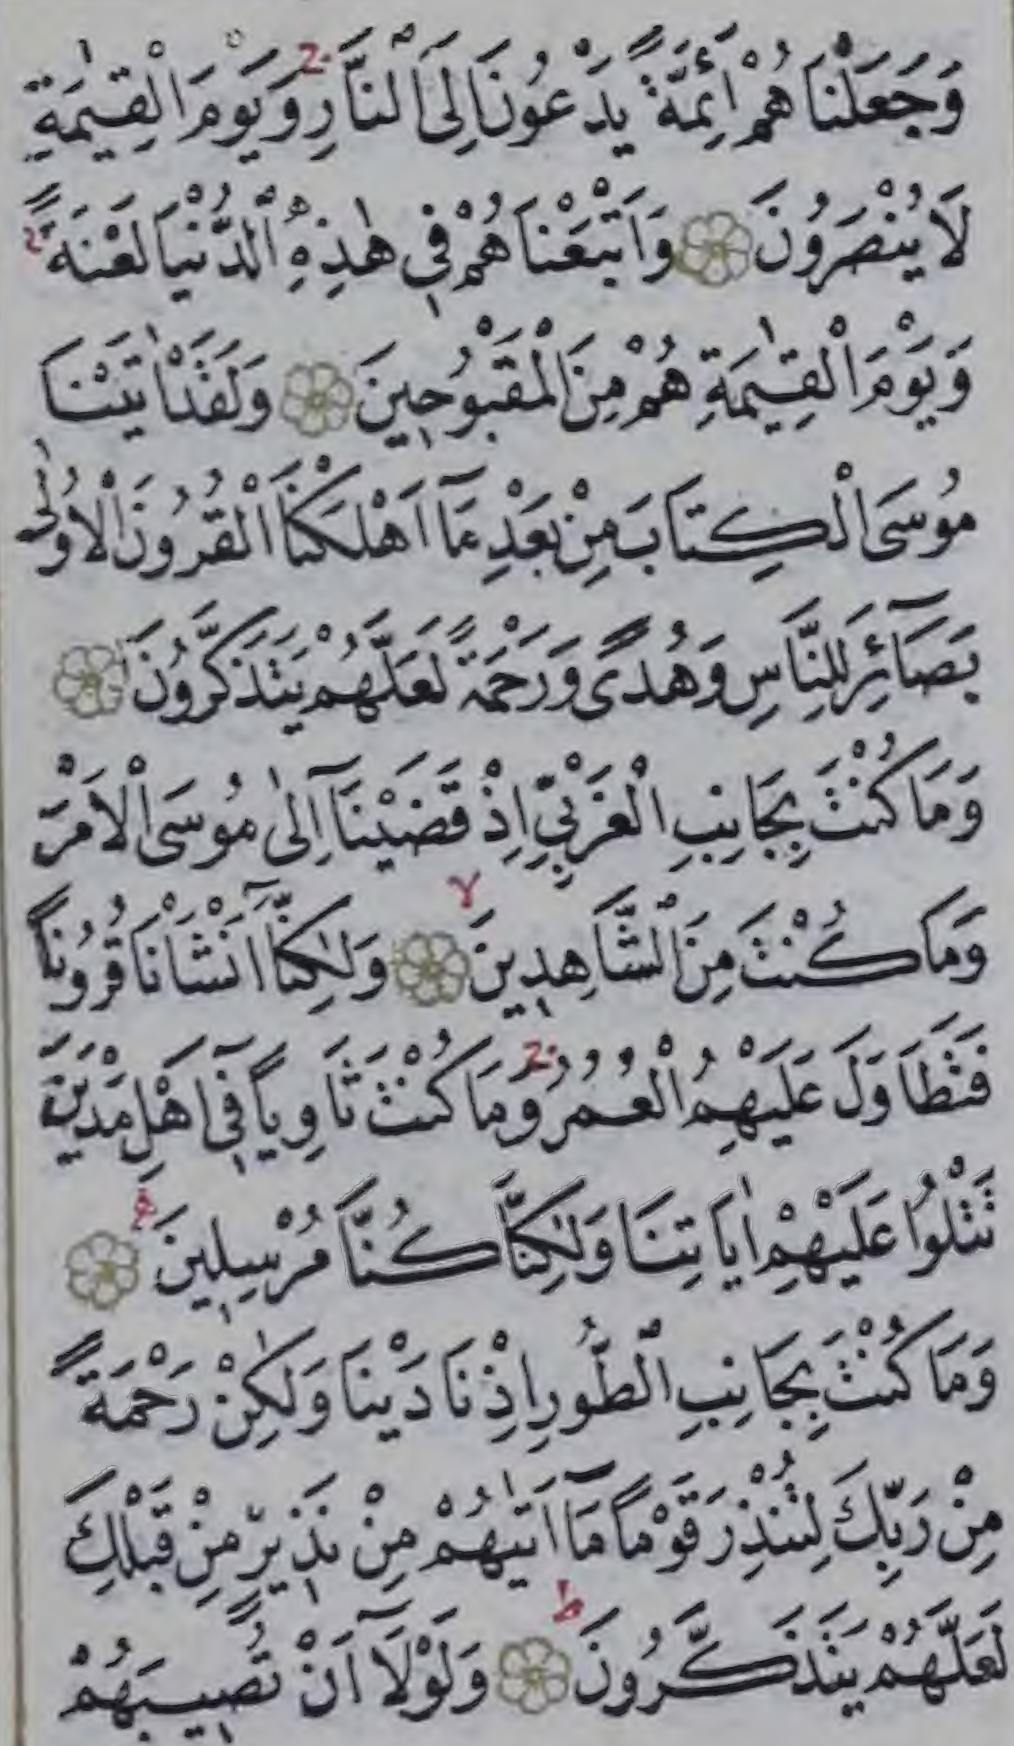 وَجَعَلْنَاهُمْ اَئِمَّةً يَدْعُونَ اِلَى النَّارِۚ وَيَوْمَ الْقِيٰمَةِ
لَا يُنْصَرُونَ ۞ وَاَتْبَعْنَاهُمْ فِي هٰذِهِ الدُّنْيَا لَعْنَةًۚ
وَيَوْمَ الْقِيٰمَةِ هُمْ مِنَ الْمَقْبُوحِينَ ۞ وَلَقَدْ اٰتَيْنَا
مُوسَى الْكِتَابَ مِنْ بَعْدِ مَٓا اَهْلَكْنَا الْقُرُونَ الْاُو۫لٰى
بَصَٓائِرَ لِلنَّاسِ وَهُدًى وَرَحْمَةً لَعَلَّهُمْ يَتَذَكَّرُونَ ۞
وَمَا كُنْتَ بِجَانِبِ الْغَرْبِيِّ اِذْ قَضَيْنَٓا اِلٰى مُوسَى الْاَمْرَ
وَمَا كُنْتَ مِنَ الشَّاهِدِينَۙ ۞ وَلٰكِنَّٓا اَنْشَاْنَا قُرُونًا
فَتَطَاوَلَ عَلَيْهِمُ الْعُمُرُۚ وَمَا كُنْتَ ثَاوِيًا فِٓي اَهْلِ مَدْيَنَ
تَتْلُوا عَلَيْهِمْ اٰيَاتِنَا وَلٰكِنَّا كُنَّا مُرْسِلِينَ ۞
وَمَا كُنْتَ بِجَانِبِ الطُّورِ اِذْ نَادَيْنَا وَلٰكِنْ رَحْمَةً
مِنْ رَبِّكَ لِتُنْذِرَ قَوْمًا مَٓا اَتٰيهُمْ مِنْ نَذِيرٍ مِنْ قَبْلِكَ
لَعَلَّهُمْ يَتَذَكَّرُونَؕ ۞ وَلَوْلَٓا اَنْ تُصِيبَهُمْ